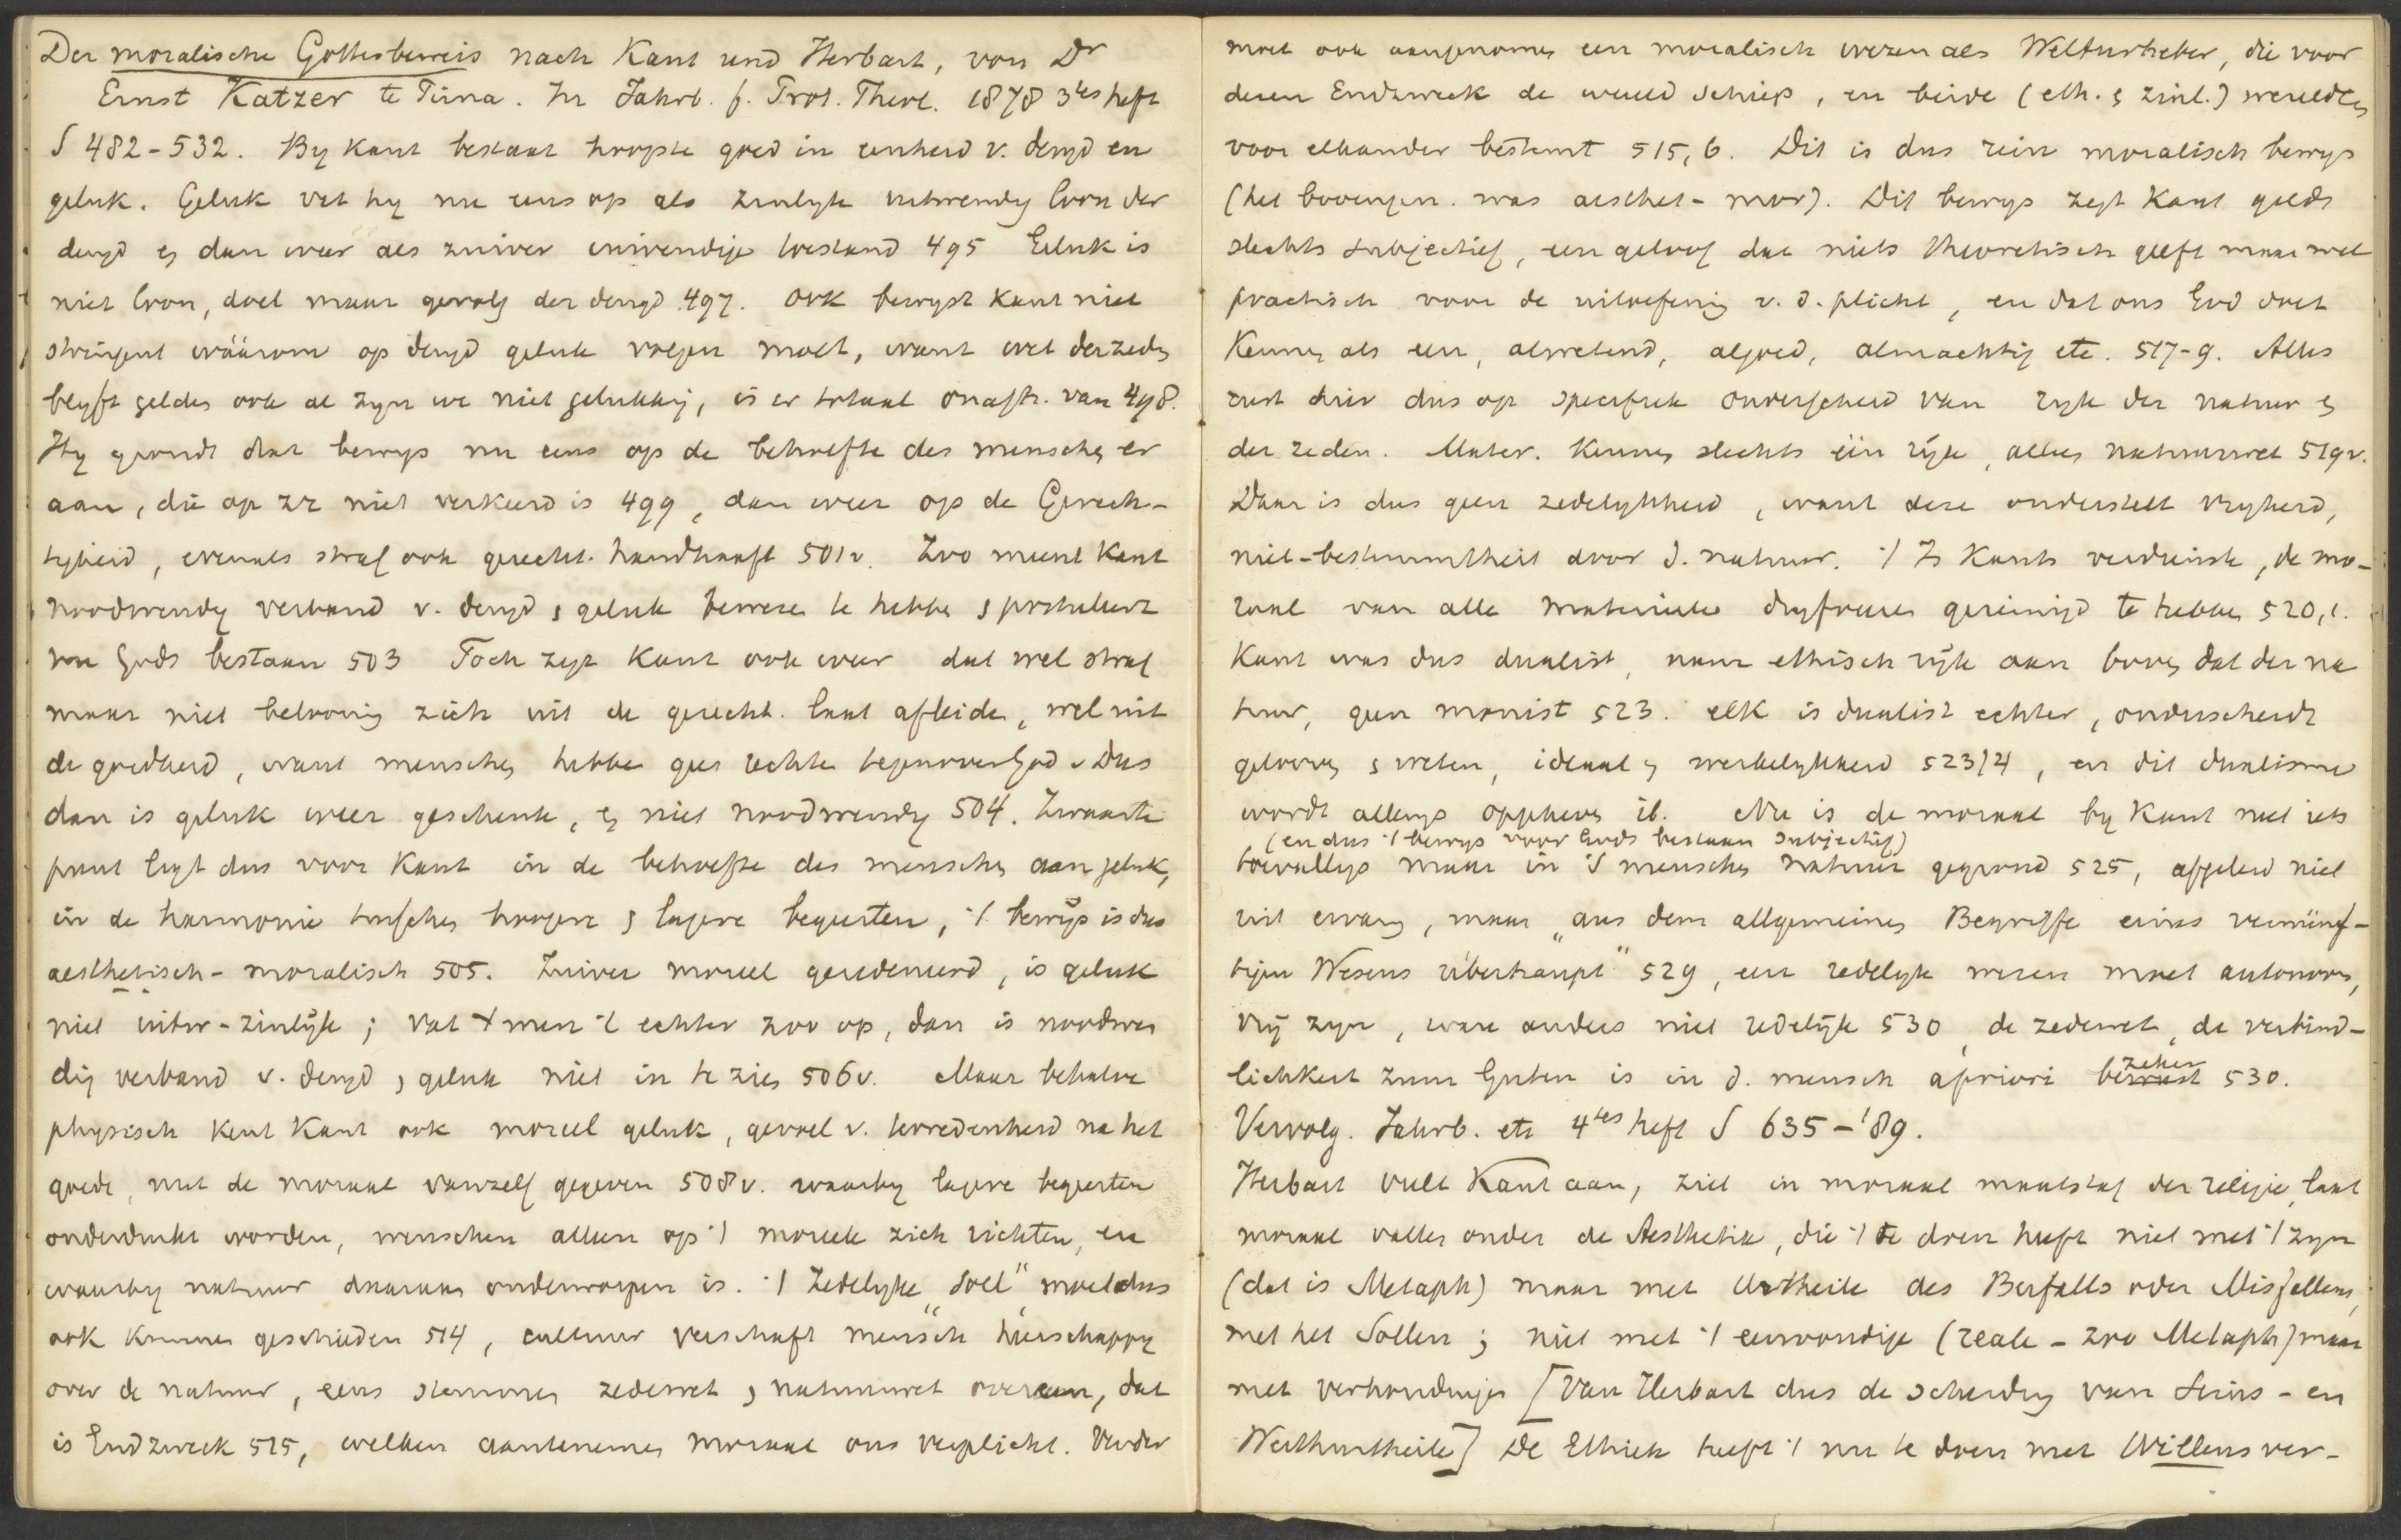 Der moralische Gottesbeweis nach Kant und Herbart, von Dr
Ernst Katzer te Pirna. In Jahrb. f. Prot. Theol. 1878 3tes heft
S 482-532. By Kant bestaat hoogste goed in eenheid v. deugd en
geluk. Geluk vat hy nu eens op als zinlyk uitwendig loon der
deugd en dan weer als zuiver inwendige toestand 495 Geluk is
niet loon, doel maar gevolg der deugd 497. ook bewyst Kant niet
stringent wáárom op deugd geluk volgen moet, want wet der zeden
blyft gelden ook al zyn we niet gelukkig, is er totaal onafh. van 498.
Hy grondt dat bewys nu eens op de behoefte des menschen er
aan, die op zz niet verkeerd is 499, dan weer op de Gerech-
tigheid, evenals straf ook gerecht. handhaaft 501v. Zoo meent Kant
noodwendig verband v. deugd & geluk bewezen te hebben & postuleert
nu Gods bestaan 503 Toch zegt Kant ook weer dat wel straf
maar niet belooning zich uit de gerecht. laat afleiden, wel uit
de goedheid, want menschen hebben geen rechten tegenover God. Dus
dan is geluk weer geschenk, en niet noodwendig 504. Zwaarte
punt ligt dus voor Kant in de behoefte des menschen aan geluk,
in de harmonie tusschen hoogere & lagere begeerten, 't bewijs is dus
aesthetisch-moralisch 505. Zuiver moreel geredeneerd, is geluk
niet uitw-zinlijk; vat men 't echter zoo op, dan is noodwen
dig verband v. deugd & geluk niet in te zien 506v. Maar behalve
physisch kent Kant ook moreel geluk, gevoel v. tevredenheid na het
goede, met de moraal vanzelf gegeven 508v. waarby lagere begeerten
onderdrukt worden, menschen alleen op 't moreele zich richten, en
waarby natuur daaraan onderworpen is. 't Zedelyke „Soll" moet dus
ook kunnen geschieden 514, cultuur verschaft mensch heerschappy
over de natuur, eens stemmen zedewet & natuurwet overeen, dat
is Endzweck 515, welken aantenemen moraal ons verplicht. Verder
moet ook aangenomen een moralisch wezen als Welturheber, die voor
dezen Endzweck de wereld schiep, en beide (eth. & zinl.) werelden
voor elkander bestemt 515,6. Dit is dus rein moralisch bewys
(het bovengen. was aesthet-mor). Dit bewys zegt Kant geldt
slechts subjectief, een geloof dat niets theoretisch geeft maar wel
practisch voor de uitoefening v. d. plicht, en dat ons God doet
Kennen als een, alwetend, algoed, almachtig etc. 517-9. Alles
rust hier dus op specifiek onderscheid van ryk der natuur en
der zeden. Mater. Kennen slechts één rijk, alles natuurwet 519v.
Daar is dus geen zedelykheid, want deze onderstelt vryheid,
niet-bestemdheit door d. natuur. 't Is Kants verdienste, de mo-
raal van alle materieele dryfveeren gereinigd te hebben 520,1.
Kant was dus dualist, nam ethisch rijk aan boven dat der na
tuur, geen monist 523. elk is dualist echter, onderscheidt
gelooven & weten, ideaal & werkelykheid 523/4, en dit dualisme
wordt allengs opgeheven ib. Nu is de moraal by Kant niet iets
(en dus 't bewys voor Gods bestaan subjectief)
toevalligs maar in 's menschen natuur gegrond 525, afgeleid niet
uit ervarg, maar „aus dem allgemeinen Begriffe eines vernünf-
tigen Wesens überhaupt" 529, een redelyk wezen moet autonoom,
vrij zyn, ware anders niet redelijk 530, de zedewet, de verbind-
lichkeit zum Guten is in d. mensch apriori zeker 530.
Vervolg. Jahrb. etc 4tes heft S 635-'89.
Herbart vult Kant aan, ziet in moraal maatstaf der religie, laat
moraal vallen onder de Aesthetik, die 't te doen heeft niet met 't zyn
(dat is Metaph) maar met Urtheile des Beifalls oder Misfallens,
met het Sollen; niet met 't eenvoudige (reale - zoo Metaph) maar
met verhoudingen [Van Herbart dus de scheiding van Seins- en
Werthurtheile] De Ethiek heeft 't nu te doen met Willensver-